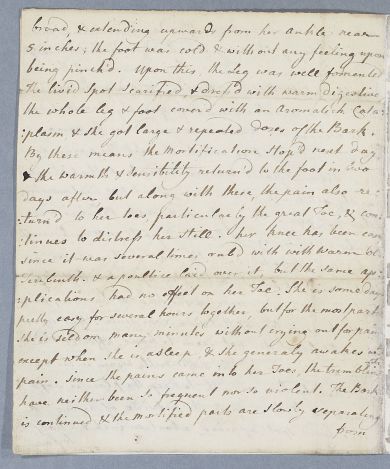 broad & extending upwards from her ankle near
5 inches; the foot was cold & without any feeling upon
being pinch'd. Upon this, the Leg was well fomented
The livid Spot Scarified & dress'd with warm digestive
the whole leg & foot cover'd with an Aromatick Cata
:plasm & she got large & repeated doses of the Bark.
By these means the Mortification Stop'd next day
& the warmth & Sensibility return'd to the foot in two
days after, but along with these the pain also re
:turn'd to her toes, particularly the great Toe, & con
:tinues to distress her Still. her Knee has been
since it was several times rub'd with with warm
& a poultice laid over it, but the same ap
:plications had no effect on her Toe. She is some days
pretty easy for several hours together, but for the most part
she is seldom many minutes without crying out for pain
except when she is asleep & she generaly awakes with
pain. Since the pains came into her Toes, the tremblings
have neither been so frequent nor so violent. The Bark
is continued & the mortified parts are slowly separating
from